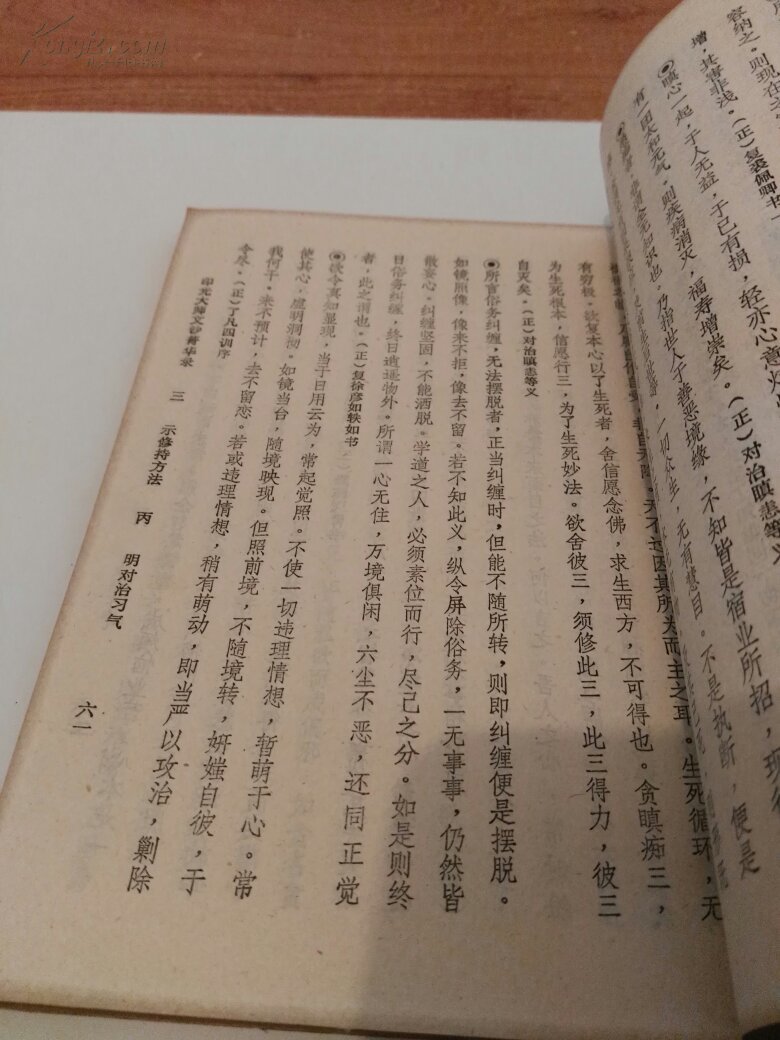 容纳之。则现在
增，其害非浅。（正）复裘佩卿书一
◉瞋心一起，于人无益，于己有损，轻亦心意烦
有一团太和元气，则疾病消灭，福寿增崇矣。（正）对治瞋恚等义
乃指世人于善恶境缘，不知皆是宿业所招，现
一切众生，无有慧目。不是执断，便是
天不过因其所为而主之耳。生死循环，无
有穷极。欲复本心以了生死者，舍信愿念佛，求生西方，不可得也。贪瞋痴三，
为生死根本，信愿行三，为了生死妙法。欲舍彼三，须修此三，此三得力，彼三
自灭矣。（正）对治瞋恚等义
◉所言俗务纠缠，无法摆脱者，正当纠缠时，但能不随所转，则即纠缠便是摆脱。
如镜照像，像来不拒，像去不留。若不知此义，纵令屏除俗务，一无事事，仍然皆
散妄心。纠缠坚固，不能洒脱。学道之人，必须素位而行，尽己之分。如是则终
日俗务纠缠，终日逍遥物外。所谓一心无住，万境俱闲，六尘不恶，还同正觉
者，此之谓也。（正）复徐彦如轶如书
◉欲令真知显现，当于日用云为，常起觉照。不使一切违理情想，暂萌于心。常
使其心，虚明洞彻。如镜当台，随境映现。但照前境，不随境转，妍媸自彼，于
我何干。来不预计，去不留恋。若或违理情想，稍有萌动，即当严以攻治，剿除
令尽。（正）了凡四训序
印光大师文钞菁华录　三　示修持方法　丙　明对治习气　六一